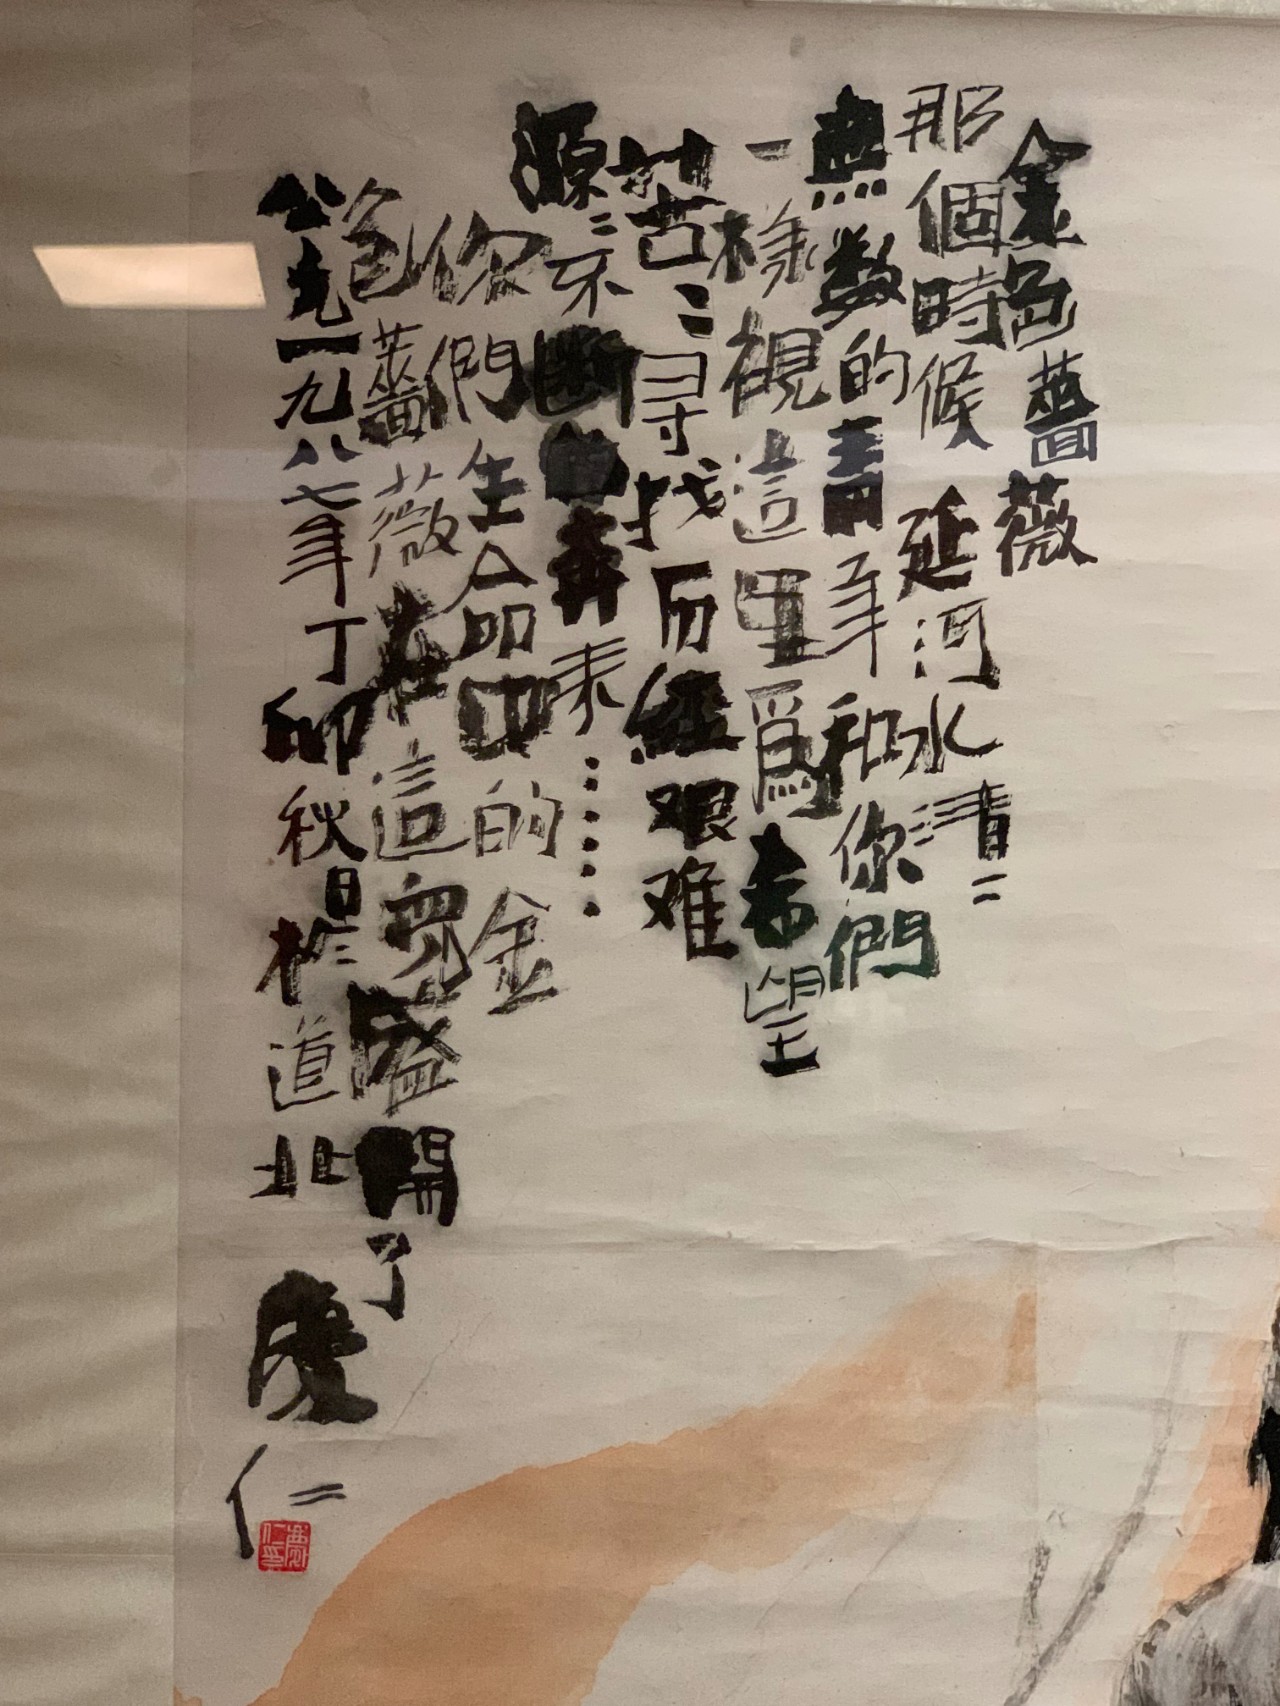 金色薔薇
那個時候延河水清〻
無数的青年和你們
一樣視這里爲希望
苦〻尋找历經艰难
源〻不断的奔来……
你們生命中的金
色薔薇在這兒盛開了
公元一九八七年丁卯秋日於道北
慶仁
慶仁印